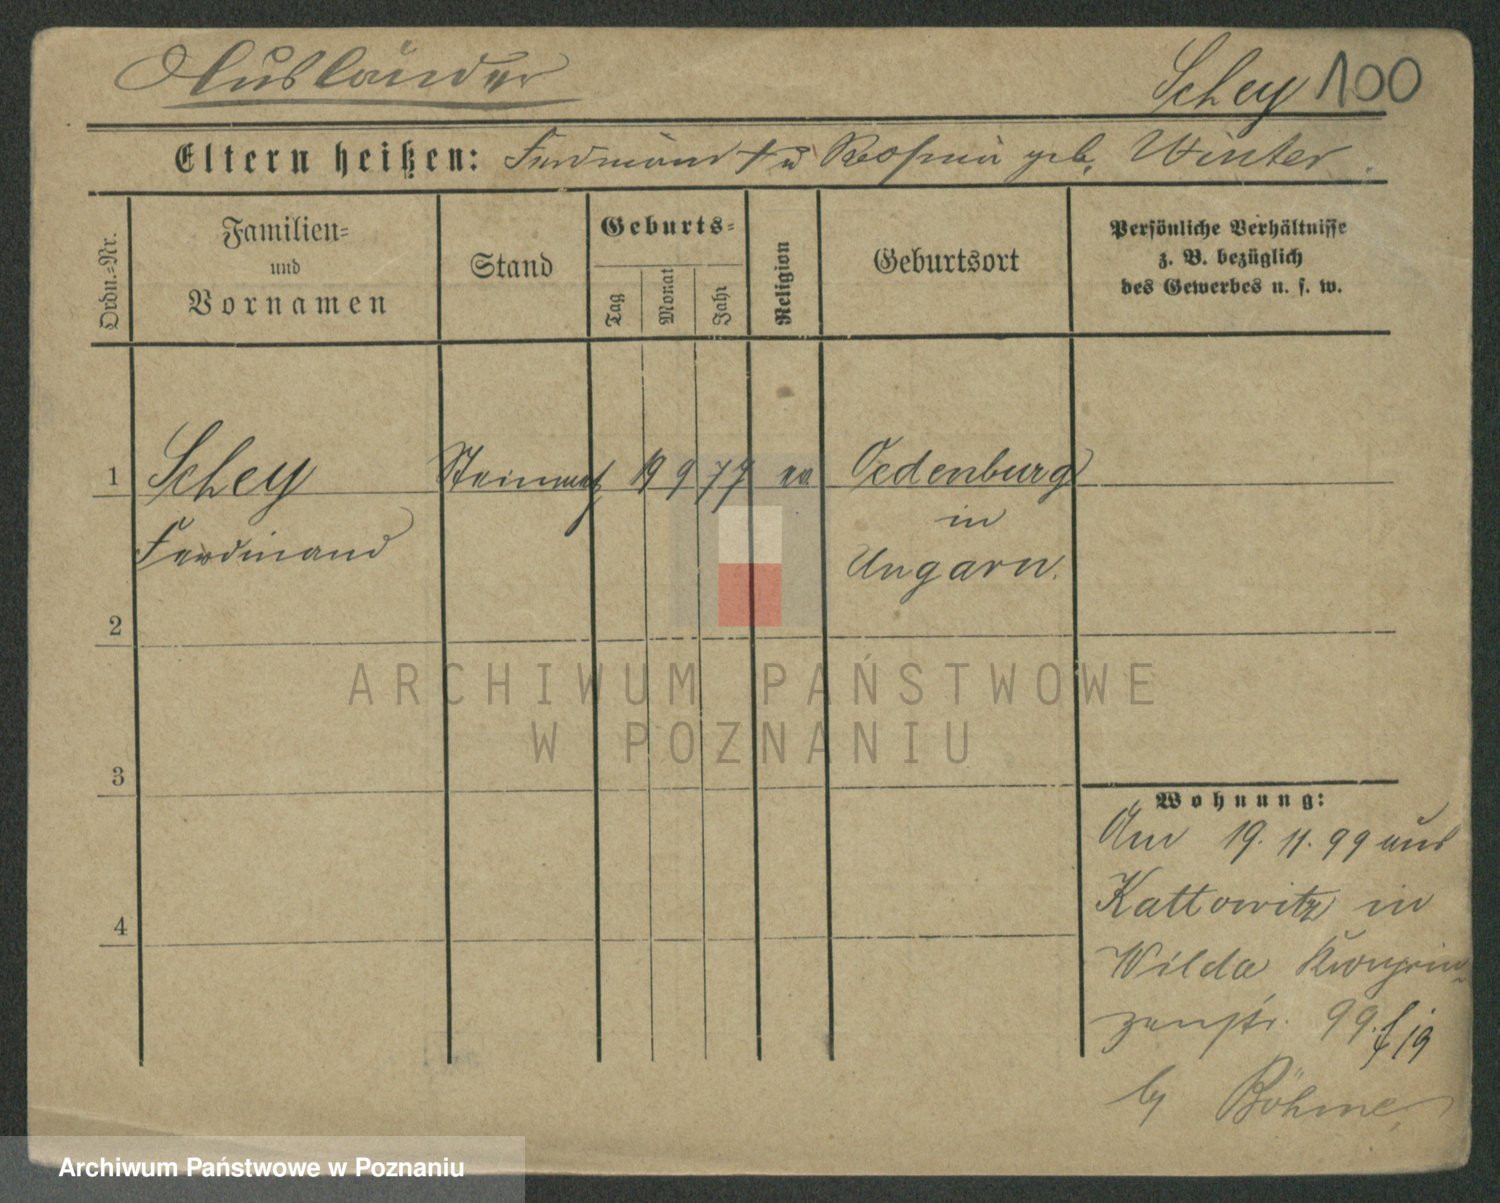 Ausländer
Schey 100
Eltern heißen: Ferdinand † u Rosina geb. Winter
Ordn.-Nr.
Familien-
und
Vornamen
Stand
Geburts-
Tag
Monat
Jahr
Religion
Geburtsort
Persönliche Verhältnisse
z. B. bezüglich
des Gewerbes u. s. w.
1 Schey Steinmetz 19 9 77 ev. Oedenburg
Ferdinand
in
Ungarn.
2
3
4
Wohnung:
Am 19. 11. 99 aus
Kattowitz in
Wilda Kronprin-
zenstr. 99.
b/ Böhme
ARCHIWUM PAŃSTWOWE
W POZNANIU
Archiwum Państwowe w Poznaniu